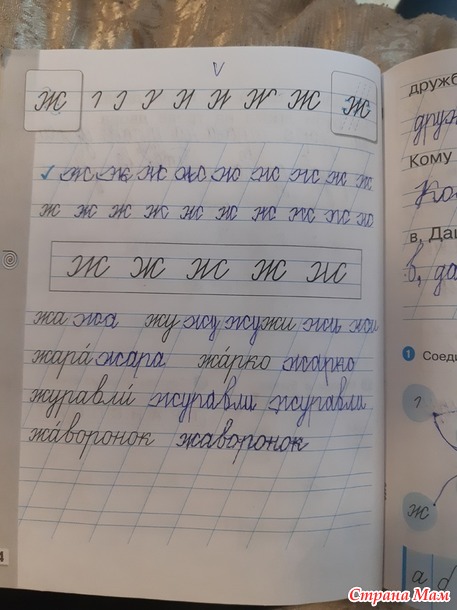 ж ж ж
ж ж ж ж ж ж ж ж ж
ж ж ж ж ж ж ж ж ж ж
ж ж ж ж ж
жа жа жу жу жужи жи жи
жара́ жара жа́рко жарко
журавли́ журавли журавли
жа́воронок жаворонок
4
дружб
друж
Кому
Ко
в, Да
в, да
1 Соеди
ж
а
Страна Мам